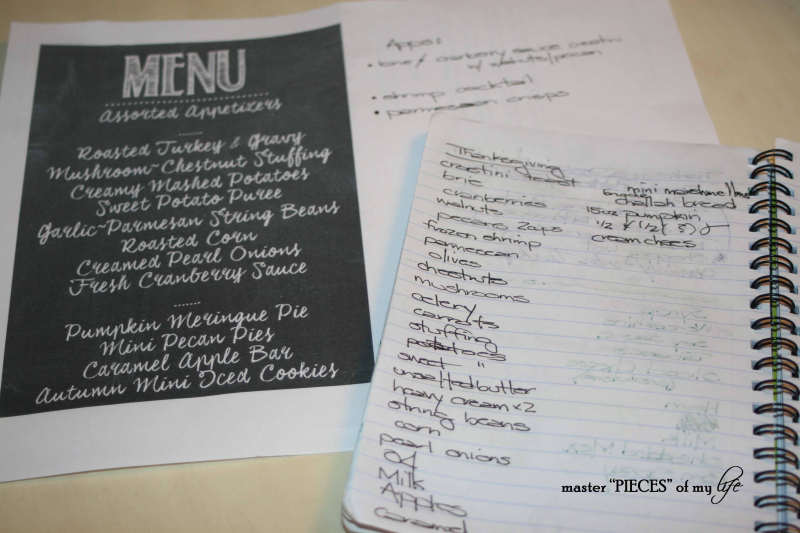 MENU
Assorted Appetizers
Roasted Turkey & Gravy
Mushroom-Chestnut Stuffing
Creamy Mashed Potatoes
Sweet Potato Puree
Garlic-Parmesan String Beans
Roasted Corn
Creamed Pearl Onions
Fresh Cranberry Sauce
Pumpkin Meringue Pie
Mini Pecan Pies
Caramel Apple Bar
Autumn Mini Iced Cookies
Apps:
• brie / cranberry sauce crostini
w/ walnuts/pecan
• shrimp cocktail
• parmesan crisps
Thanksgiving
crostini
brie
cranberries
walnuts
pecans 2cups
frozen shrimp
parmesan
olives
chestnuts
mushrooms
celery
carrots
stuffing
potatoes
sweet "
unsalted butter
heavy cream x2
string beans
corn
pearl onions
OJ
Milk
Apples
Caramel
mini marshmallows
challah bread
15oz pumpkin
1/2 & 1/2
cream chees
Milk
master "PIECES" of my life